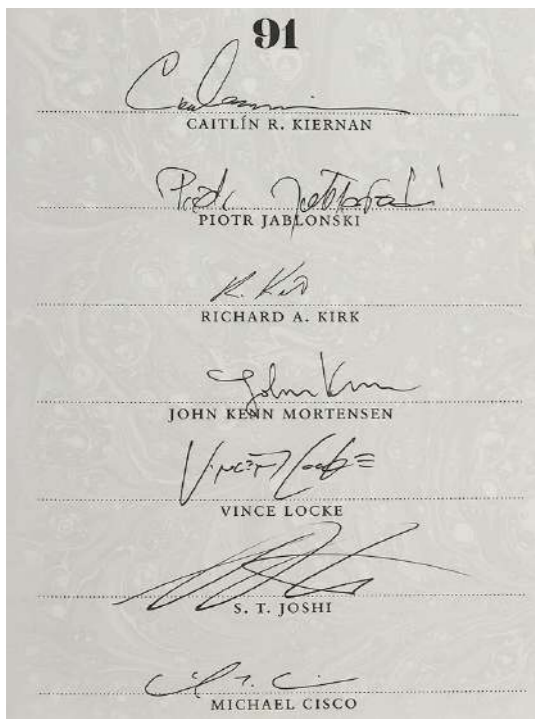 91
CAITLÍN R. KIERNAN
PIOTR JABŁOŃSKI
RICHARD A. KIRK
John Kenn
JOHN KENN MORTENSEN
Vince Locke
VINCE LOCKE
S. T. JOSHI
MICHAEL CISCO